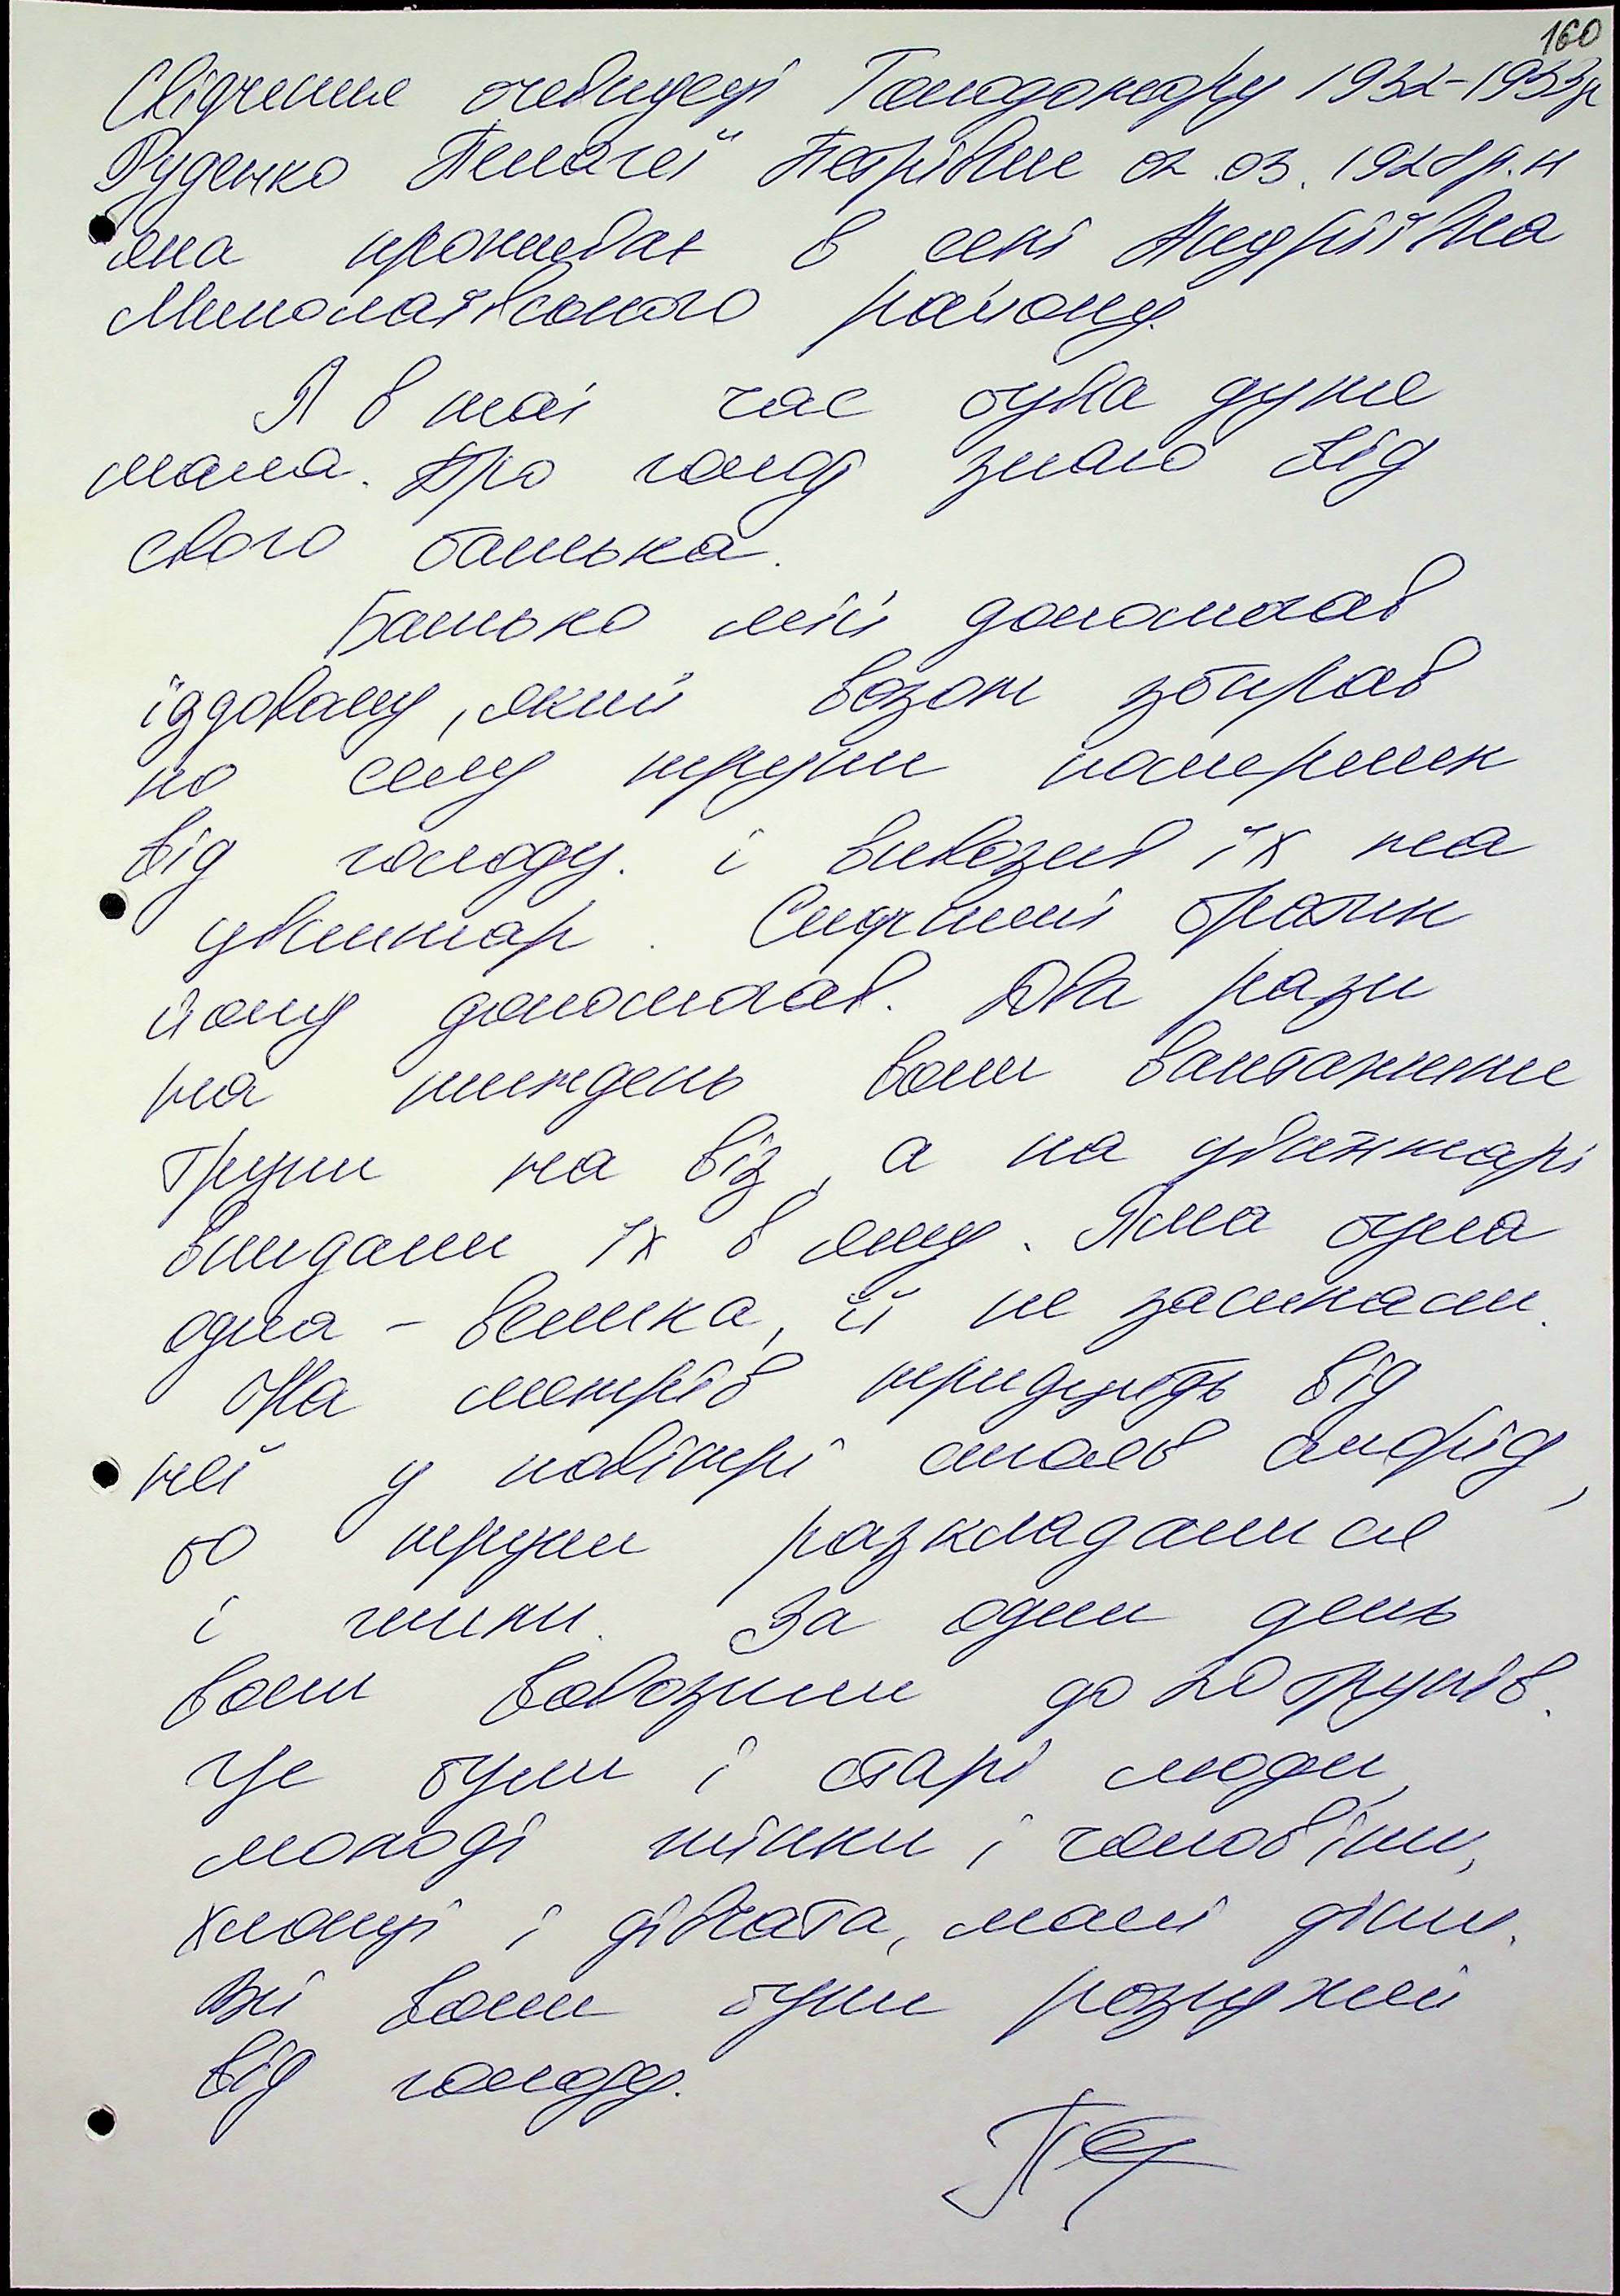 160
Свідчення очевидеці Голодомору 1932-1933р
Руденко Пелагеї Петрівни 02.03.1928р.н
яка проживає в селі Андріївка
Миколаївського району.
Я в той час була дуже
мала. Про голод знаю від
свого батька.
Батько мій допомагав
їздовому, який возом збирав
по селу трупи померших
від голоду. і вивозив їх на
цвинтар. Старший братик
йому допомагав. Два рази
на тиждень вони вантажили
трупи на віз, а на цвинтарі
викидали їх в яму. Яма була
одна - велика, її не засипали.
На метрів тридцять від
неї у повітрі стояв сморід,
бо трупи розкладалися
і гнили. За один день
вони вивозили до 20 трупів.
Це були і старі люди,
молоді жінки і чоловіки,
хлопці і дівчата, малі діти.
Всі вони були розпухлі
від голоду.